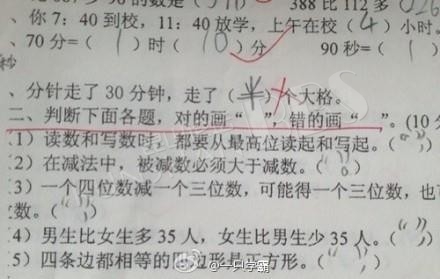 388比112多
你7：40到校，11：40放学，上午在校（4）小时。
70分=（1）时（10）分 90秒=（1
秒
分针走了30分钟，走了（半）个大格。
二、判断下面各题，对的画“ ”，错的画“ ”。（10分
1）读数和写数时，都要从最高位读起和写起。（“”）
2）在减法中，被减数必须大于减数。（“”）
3）一个四位数减一个三位数，可能得一个三位数，也可
数。（“”）
4）男生比女生多35人，女生比男生少35人。（“”）
5）四条边都相等的四边形是正方形。（“”）
@一只学霸